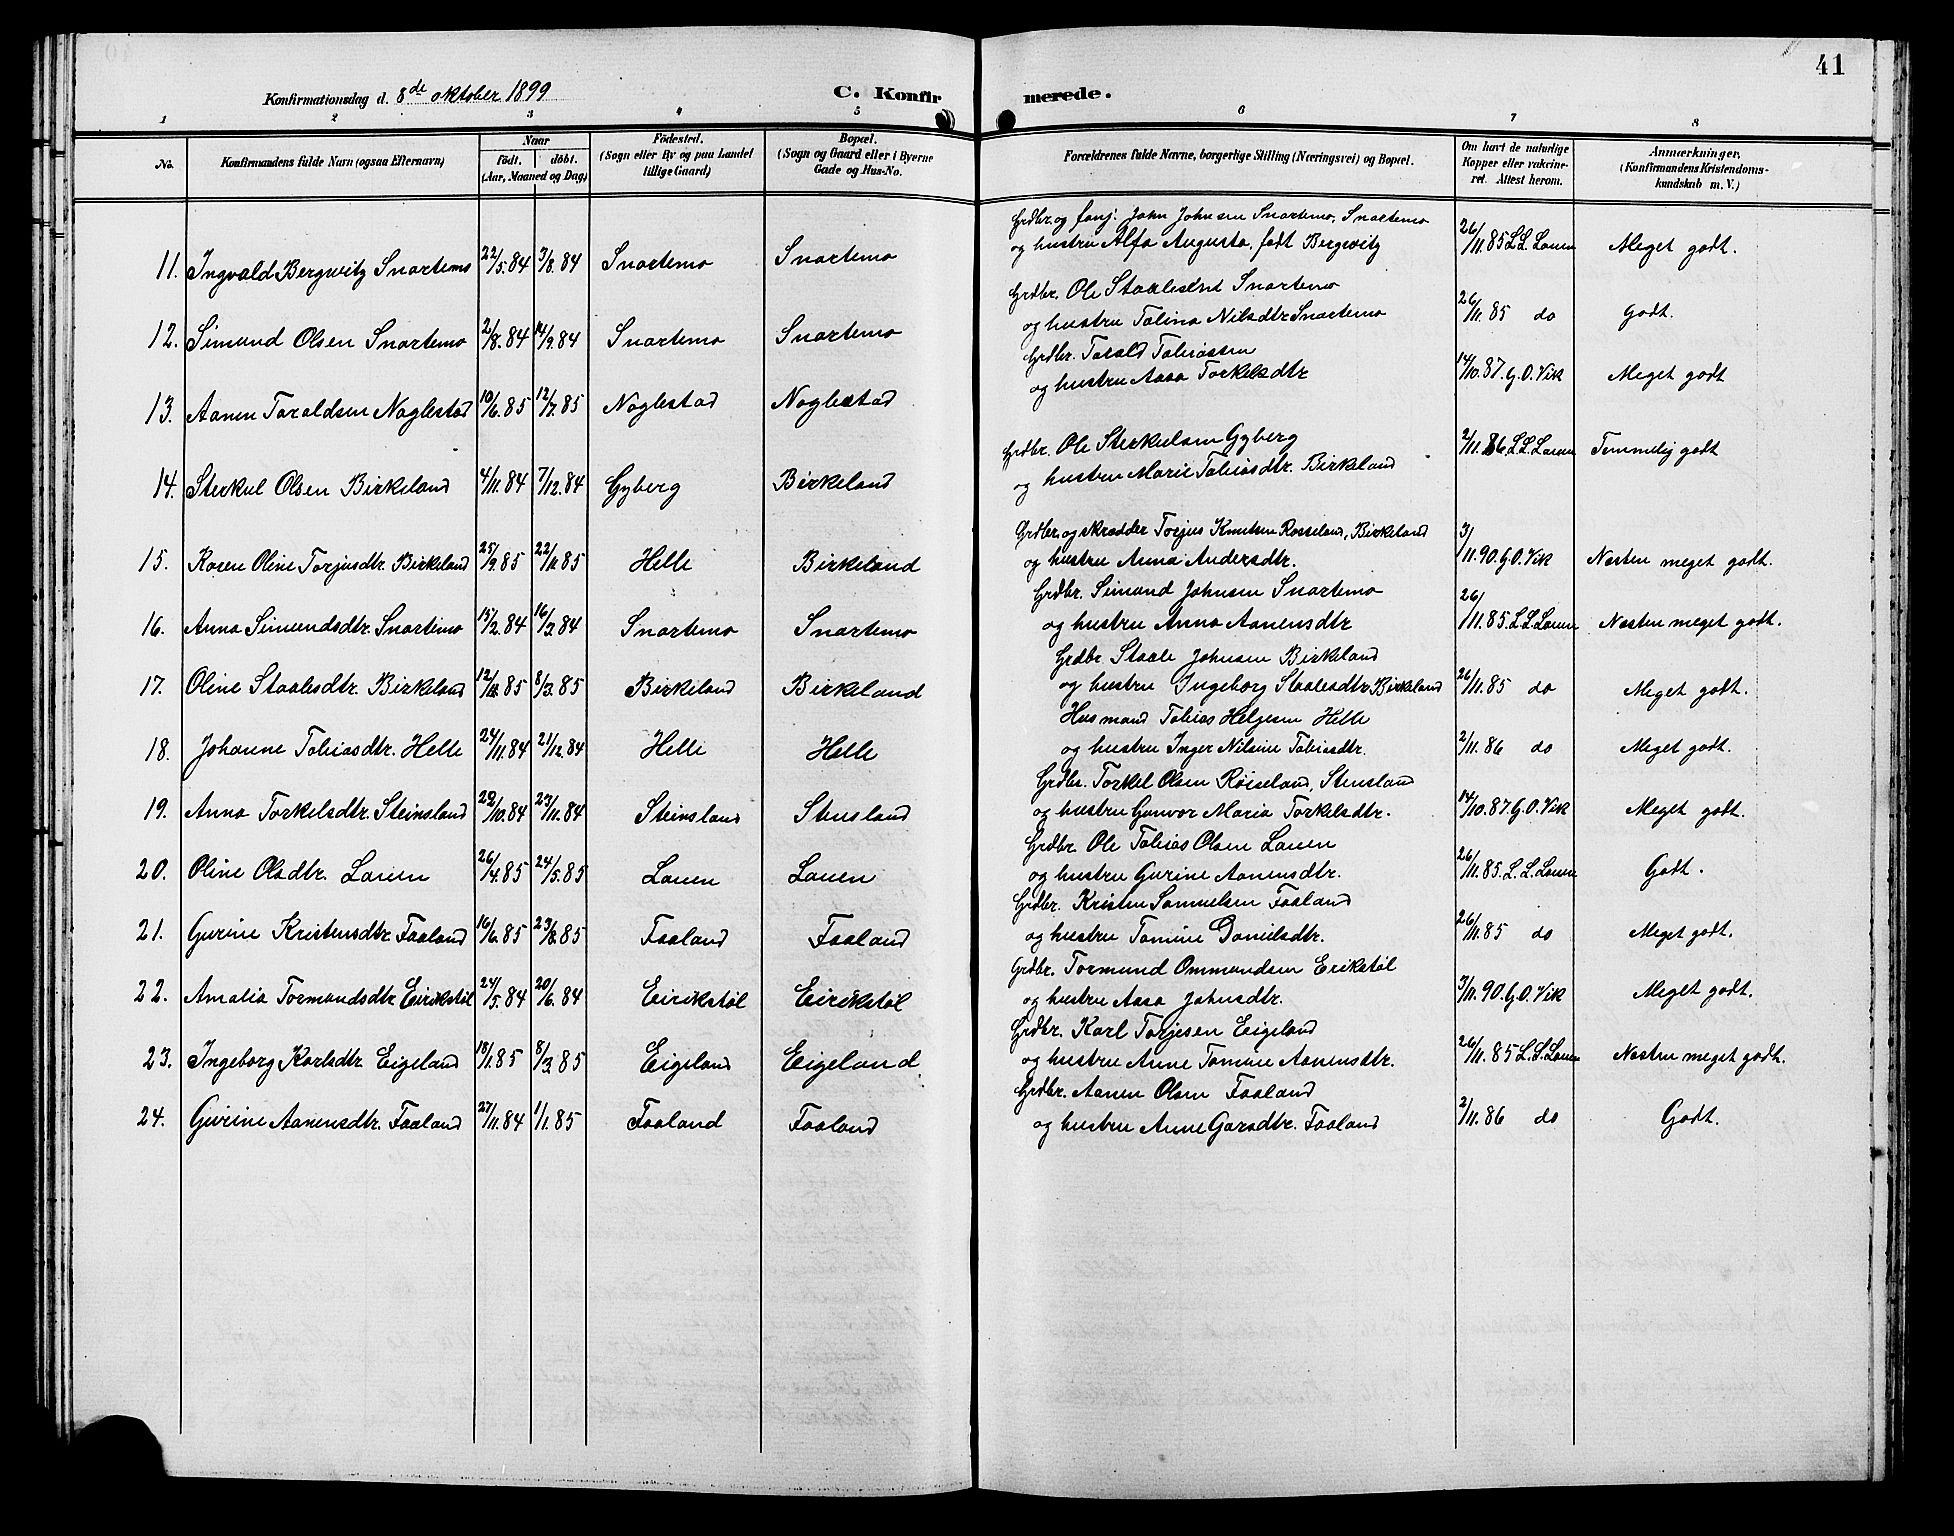 41
Konfirmationsdag d. 8de oktober 1899 C. Konfirmerede.
1 2 3 4 5 6 7 8
No. Konfirmandens fulde Navn (ogsaa Efternavn) Naar födt. döbt. (Aar, Maaned og Dag) Födested. (Sogn eller By og paa Landet tillige Gaard) Bopæl. (Sogn og Gaard eller i Byerne Gade og Hus-No. Forældrenes fulde Navne, borgerlige Stilling (Næringsvei) og Bopæl. Om havt de naturlige Kopper eller vakcineret. Attest herom. Anmærkninger. (Konfirmandens Kristendomskundskab m. V.)
Grdbr. og fanj. John Johnsen Snartemo, Snartemo
11. Ingvald Bergwitz Snartemo 22/5.84 3/8.84 Snartemo Snartemo og hustru Alfa Augusta, født Bergwitz 26/11.85 L.L. Lauen Meget godt.
Grdbr. Ole Staalesen Snartemo
12. Simund Olsen Snartemo 2/8.84 14/9.84 Snartemo Snartemo og hustru Talina Nilsdtr Snartemo 26/11.85 do Godt.
Grdbr. Tarald Tobiassen
13. Aanen Taraldsen Noglestad 10/6.85 12/7.85 Noglestad Noglestad og hustru Aasa Torkelsdtr 14/10.87. G.O. Vik Meget godt
Grdbr. Ole Sterkulsen Gyberg
14. Sterkul Olsen Birkeland 4/11.84 7/12.84 Gyberg Birkeland og hustru Marie Tobiasdtr. Birkeland 2/11.86 L.L. Lauen Temmelig godt
Grdbr. og skrædder Torjus Knutsen Rosseland, Birkeland
15. Karen Oline Torjusdtr. Birkeland 25/9.85 22/11.85 Helle Birkeland og hustru Anna Andersdtr. 3/11.90. G.O. Vik Næsten meget godt.
Grdbr. Simund Johnsen Snartemo
16. Anna Simundsdtr. Snartemo 15/2.84 16/3.84 Snartemo Snartemo og hustru Anna Aanensdtr 26/11.85. L.L. Lauen Næsten meget godt.
Grdbr. Staale Johnsen Birkeland
17. Oline Staalesdtr. Birkeland 85 8/3.85 Birkeland Birkeland og hustru Ingeborg Staalesdtr Birkeland 26/11.85 do Meget godt.
Husmand Tobias Helgesen Helle
18. Johanne Tobiasdtr. Helle 24/11.84 21/12.84 Helle Helle og hustru Inger Nilsine Tobiasdtr. 2/11.86 do Meget godt.
Grdbr. Torkel Olsen Røiseland, Stensland
19. Anna Torkelsdtr. Steinsland /10.84 23/11.84 Steinsland Stensland og hustru Gunvor Maria Torkelsdtr. 14/10.87. G.O. Vik Meget godt.
Grdbr. Ole Tobias Olsen Lauen
20. Oline Olsdtr. Lauen 26/4.85 24/5.85 Lauen Lauen og hustru Gurine Aanensdtr. 26/11.85. L.L. Lauen Godt.
Grdbr. Kristen Samuelsen Faaland
21. Gurine Kristensdtr. Faaland 16/6.85 23/8.85 Faaland Faaland og hustru Tomine Danielsdtr. 26/11.85 do Meget godt.
Grdbr. Tormund Ommundsen Erikstøl
22. Amalia Tormundsdtr Eirikstøl 24/5.84 20/6.84 Eirikstøl Eirikstøl og hustru Aasa Johnsdtr. 3/11.90. G.O. Vik Meget godt.
Grdbr. Karl Torjesen Eigeland
23. Ingeborg Karlsdtr. Eigeland 18/1.85 8/3.85 Eigeland Eigeland og hustru Anne Tomine Aanensdtr. 26/11.85 L.L. Lauen Næsten meget godt.
Grdbr. Aanen Olsen Faaland
24. Gurine Aanensdtr. Faaland 27/11.84 1/1.85 Faaland Faaland og hustru Anne Garsdtr. Faaland 2/11.86 do Godt.